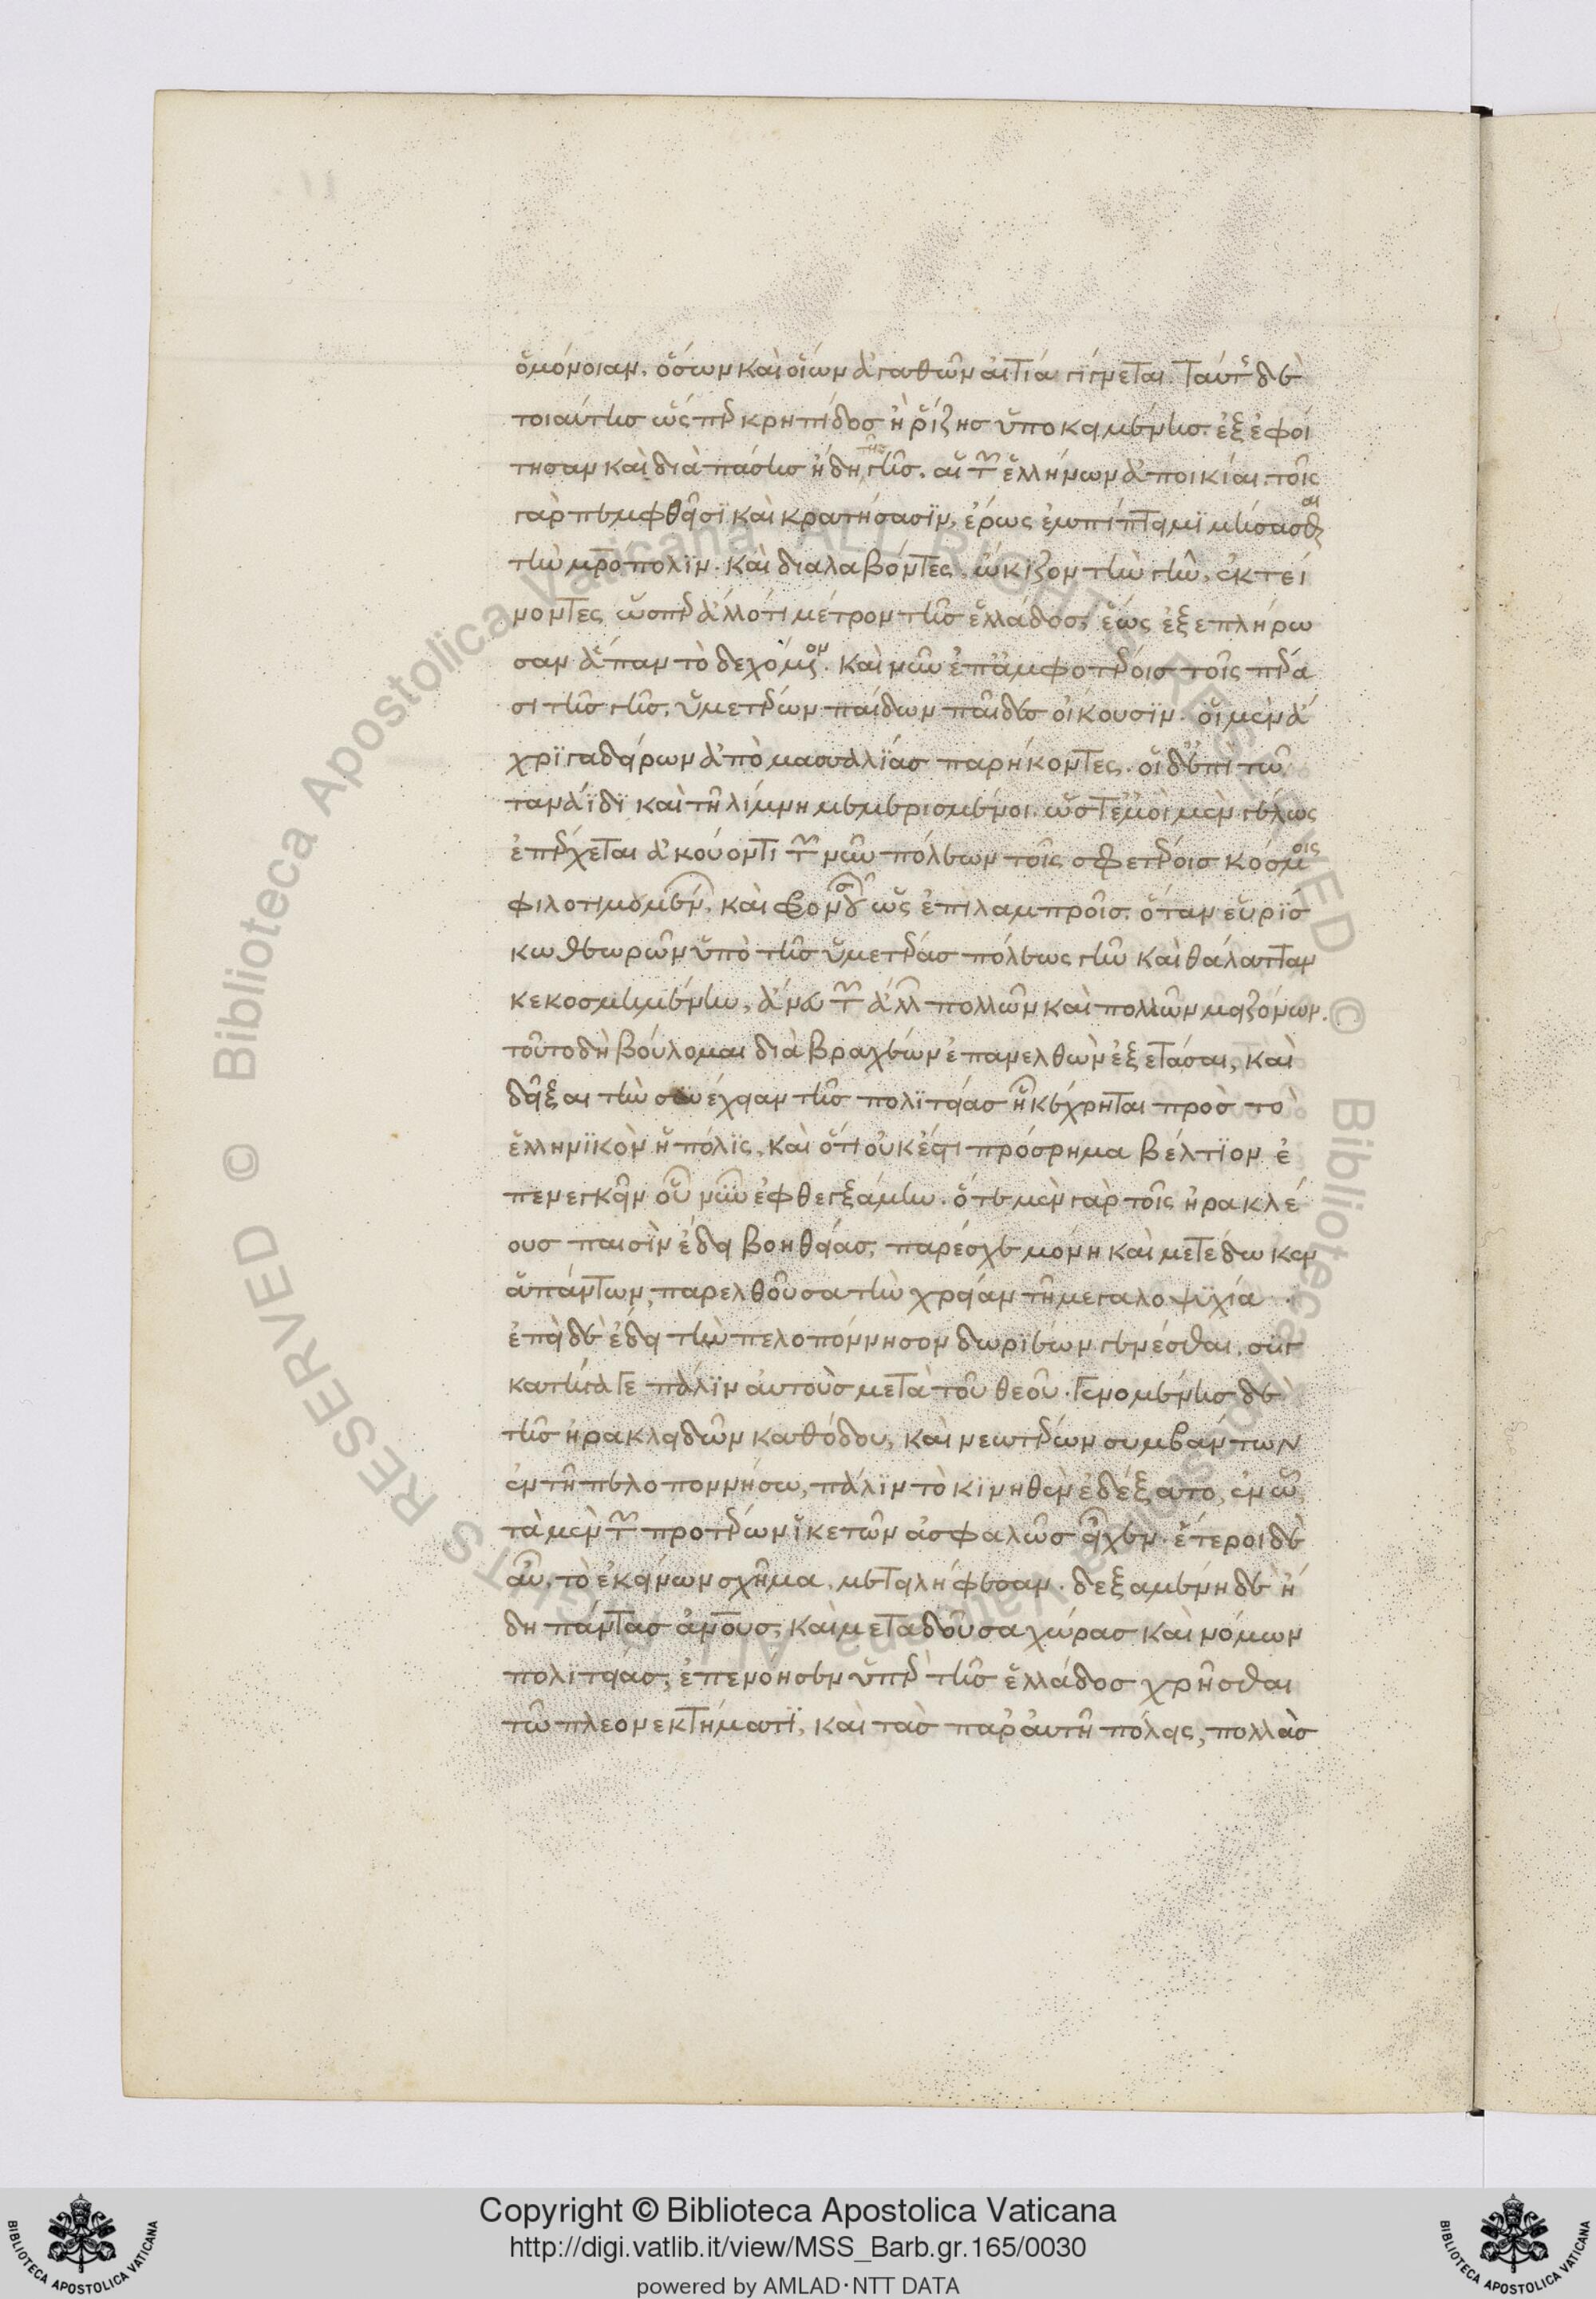 ὁμόνοιαν. ὅσων καὶ οἵων ἀγαθῶν αἰτία γίγνεται. ταύτης δὲ
τοιαύτης ὥσπερ κρηπῖδος ἢ ῥίζης ὑποκειμένης. ἐξεφοί
τησαν καὶ διὰ πάσης ἤδη τῆς γῆς. αἱ τῶν ἑλλήνων ἀποικίαι. τοῖς
γὰρ πεμφθεῖσι καὶ κρατήσασιν, ἔρως ἐμπίπτει μιμήσασθαι
τὴν μητρόπολιν. καὶ διαλαβόντες, ᾤκιζον τὴν γῆν, ἐκτεί
νοντες ὥσπερ ἄλλό τι μέτρον τῆς ἑλλάδος, ἕως ἐξεπλήρω
σαν ἅπαν τὸ δεχόμενον. καὶ νῦν ἐπ' ἀμφοτέροις τοῖς πέρα
σι τῆς γῆς, ὑμετέρων παίδων παῖδες οἰκοῦσιν. οἱ μὲν ἄ
χρι γαδείρων ἀπὸ μασσαλίας παρήκοντες. οἱ δ' ἐπὶ τῷ
ταναΐδι καὶ τῇ λίμνῃ μεμερισμένοι. ὥστ' ἐμοὶ μὲν γέλως
ἐπέρχεται ἀκούοντι τῶν νῦν πόλεων τοῖς σφετέροις κόσμοις
φιλοτιμουμένων, καὶ φρονουσῶν ὡς ἐπὶ λαμπροῖς. ὅταν εὑρίσ
κω θεωρῶν ὑπὸ τῆς ὑμετέρας πόλεως γῆν καὶ θάλατταν
κεκοσμημένην, ἄνευ τῶν ἄλλων πολλῶν καὶ πολλῶν μειζόνων.
τοῦτο δὴ βούλομαι διὰ βραχέων ἐπανελθὼν ἐξετάσαι, καὶ
δεῖξαι τὴν συνέχειαν τῆς πολιτείας ᾗ κέχρηται πρὸς τὸ
ἑλληνικὸν ἡ πόλις, καὶ ὅτι οὐκ ἔστι πρόσρημα βέλτιον ἐ
πενεγκεῖν οὗ νῦν ἐφθεγξάμην. ὅτε μὲν γὰρ τοῖς ἡρακλέ
ους παισὶν ἔδει βοηθείας, παρέσχε μόνη καὶ μετέδωκεν
ἁπάντων, παρελθοῦσα τὴν χρείαν τῇ μεγαλοψυχίᾳ.
ἐπεὶ δὲ ἔδει τὴν πελοπόννησον δωριέων γενέσθαι, συγ
κατήγαγε πάλιν αὐτοὺς μετὰ τοῦ θεοῦ. γενομένης δὲ
τῆς ἡρακλειδῶν καθόδου, καὶ νεωτέρων συμβάντων
ἐν τῇ πελοποννήσῳ, πάλιν τὸ κινηθὲν ἐδέξατο, ἐν ᾧ
τὰ μὲν τῶν προτέρων ἱκετῶν ἀσφαλῶς εἶχεν. ἕτεροι δὲ
αὖ, τὸ ἐκείνων σχῆμα, μετειλήφεσαν. δεξαμένη δὲ ἤ
δη πάντας ἀνθρώπους, καὶ μεταδοῦσα χώρας καὶ νόμων
πολιτείας, ἐπενόησεν ὑπὲρ τῆς ἑλλάδος χρῆσθαι
τῷ πλεονεκτήματι, καὶ τὰς παρ' αὐτῇ πόλεις, πολλὰς
Copyright © Biblioteca Apostolica Vaticana
http://digi.vatlib.it/view/MSS_Barb.gr.165/0030
powered by AMLAD·NTT DATA